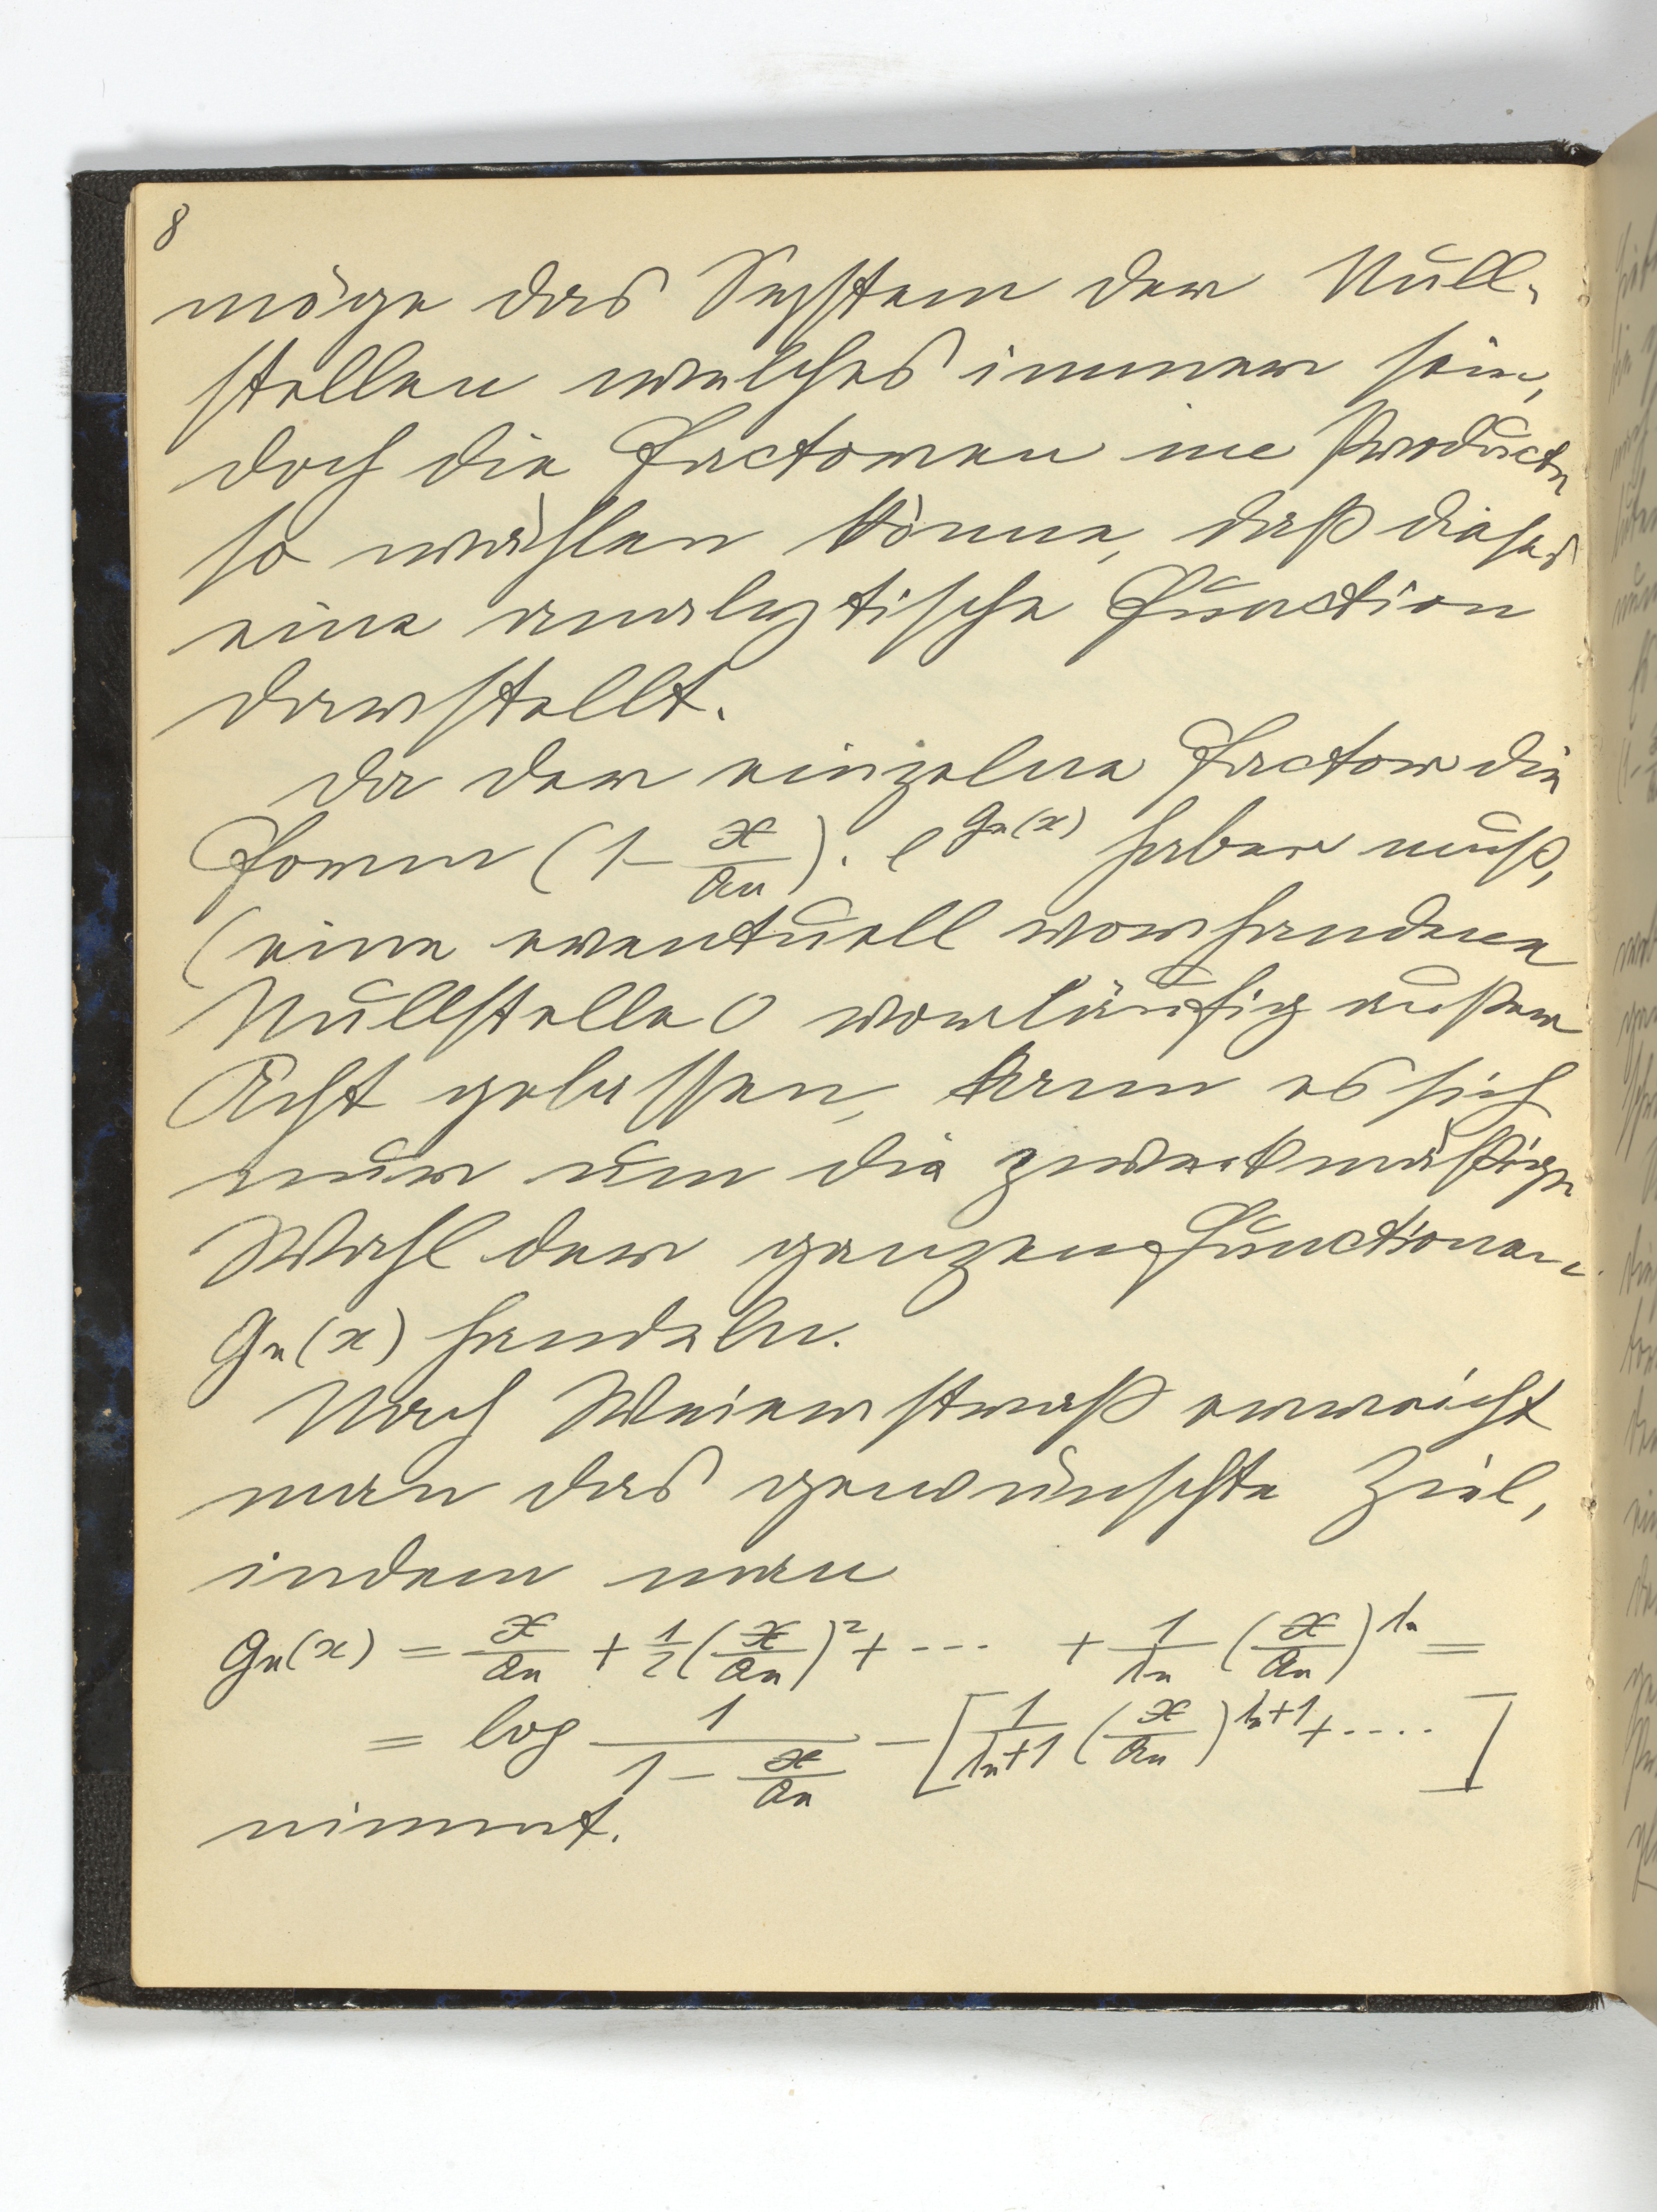 8
möge das System der Null-
stellen welches immer sein,
doch die Factoren im Producte
so wählen könne, daß dieses
eine analytische Function
darstellt.
Da der einzelne Factor die
Form (1 - x/aₙ) · e^{Gₙ(x)} haben muß,
(eine eventuell vorhandene
Nullstelle 0 vorläufig außer
Acht gelassen, kann es sich
nur um die zweckmäßige
Wahl der ganzen Functionen
Gₙ(x) handeln.
Nach Weierstraß erreicht
man das gewünschte Ziel,
indem man
Gₙ(x) = x/aₙ + 1/2 (x/aₙ)² + --- + 1/λₙ (x/aₙ)^{λₙ} =
= log 1/(1 - x/aₙ) - [1/(λₙ+1) (x/aₙ)^{λₙ+1} + ----]
nimmt.